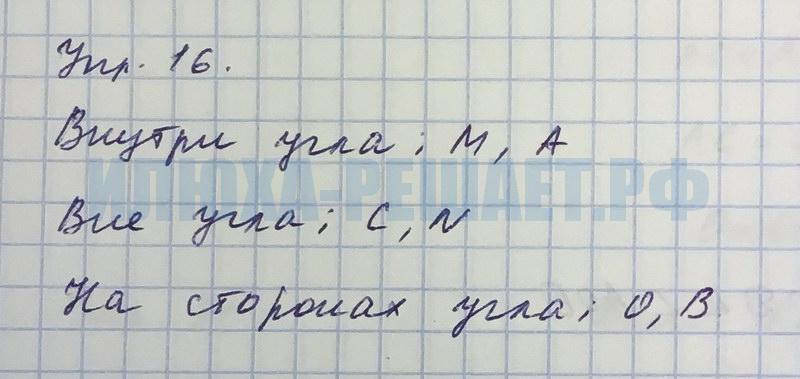 Упр. 16.
Внутри угла; М, А
ИЛЮХА-РЕШАЕТ.РФ
Вне угла; С, N
На сторонах угла; О, В